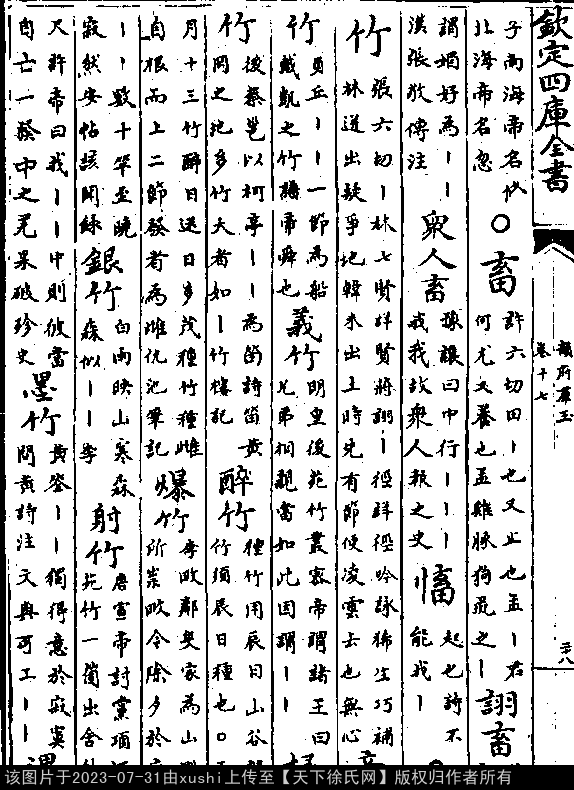 欽定四庫全書
韻府羣玉
卷十七
三八
子南海帝名
北海帝名忽
○畜
許六切田丨也又止也孟丨君
何尤又養也孟雞豚狗彘之丨
詡畜
謂媚好為丨丨
漢張敞傳注
衆人畜
豫讓曰中行丨丨丨
戒我故衆人報之史
慉
起也詩不
能我丨
竹
張六切丨林七賢詳賢將詡丨徑詳徑吟詠稀生巧補
林迸出疑爭地韓未出土時先有節便凌雲去也無心
竹
員丘丨丨一節為船
戴凱之竹譜帝舜也
義竹
明皇後苑竹叢密帝謂諸王曰
兄弟相親當如此因謂丨丨
竹
後蔡邕以柯亭丨丨為笛詩笛黃
岡之地多竹大者如丨竹樓記
醉竹
種竹用辰日山谷
竹須辰日種也○
月十三竹醉日選日多茂種竹種雌
自根而上二節發者為雌仇池筆記
爆竹
李畋鄰叟家為山
所祟畋令除夕於
丨丨數十竿至曉
寂然安帖該聞錄
銀竹
白雨映山寒森
森似丨丨李
射竹
唐宣帝討黨項
苑竹一箇出舍
尺許帝曰我丨丨中則彼當
自亡一發中之羌果破珍史
墨竹
黃筌丨丨獨得意於寂寞
問黃詩注文與可工丨丨
该图片于2023-07-31由xushi上传至【天下徐氏网】版权归作者所有